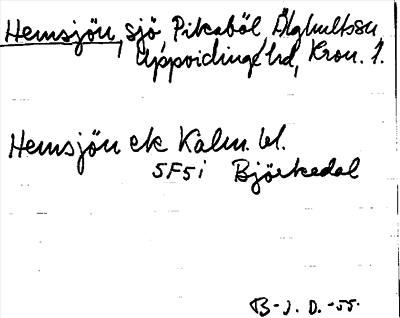 Hemsjön, sjö Pikaböl, Älghultssn,
Uppvidinge hd, Kron. l.
Hemsjön ek Kalm. bl.
5F5i Björkedal
B-J. D. -55.